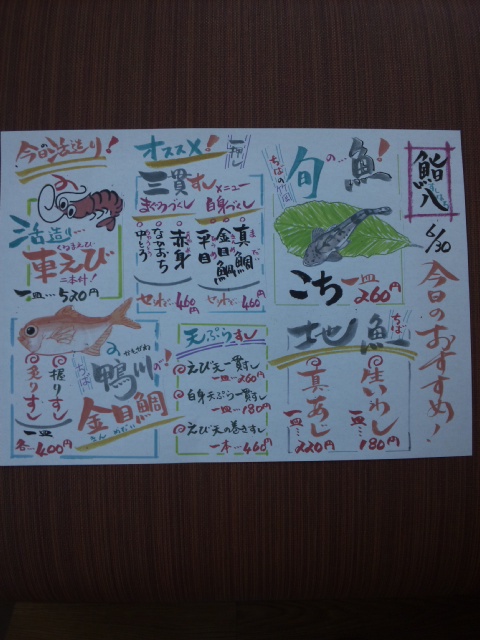 鮨八
6/30
今日のおすすめ!
ちばの竹岡
旬の…魚!
こち一皿260円
地魚
ちば
生いわし
一皿…180円
真あじ
一皿…220円
オススメ!!
三貫すしメニュー
まぐろづくし
白身づくし
赤身
なかおち
中とろ
真鯛
金目鯛
平目
セットに…460円
セットに…460円
天ぷらすし
えび天一貫すし
一皿…260円
白身天ぷら一貫すし
一皿…180円
えび天の巻きすし
一本…460円
今日の活造り!
の
活造り…
くるまえび
車えび
二本付!
一皿…520円
の
ちば
かもがわ
鴨川の!
金目鯛
きんめだい
握りすし
炙りすし
一皿
各…400円